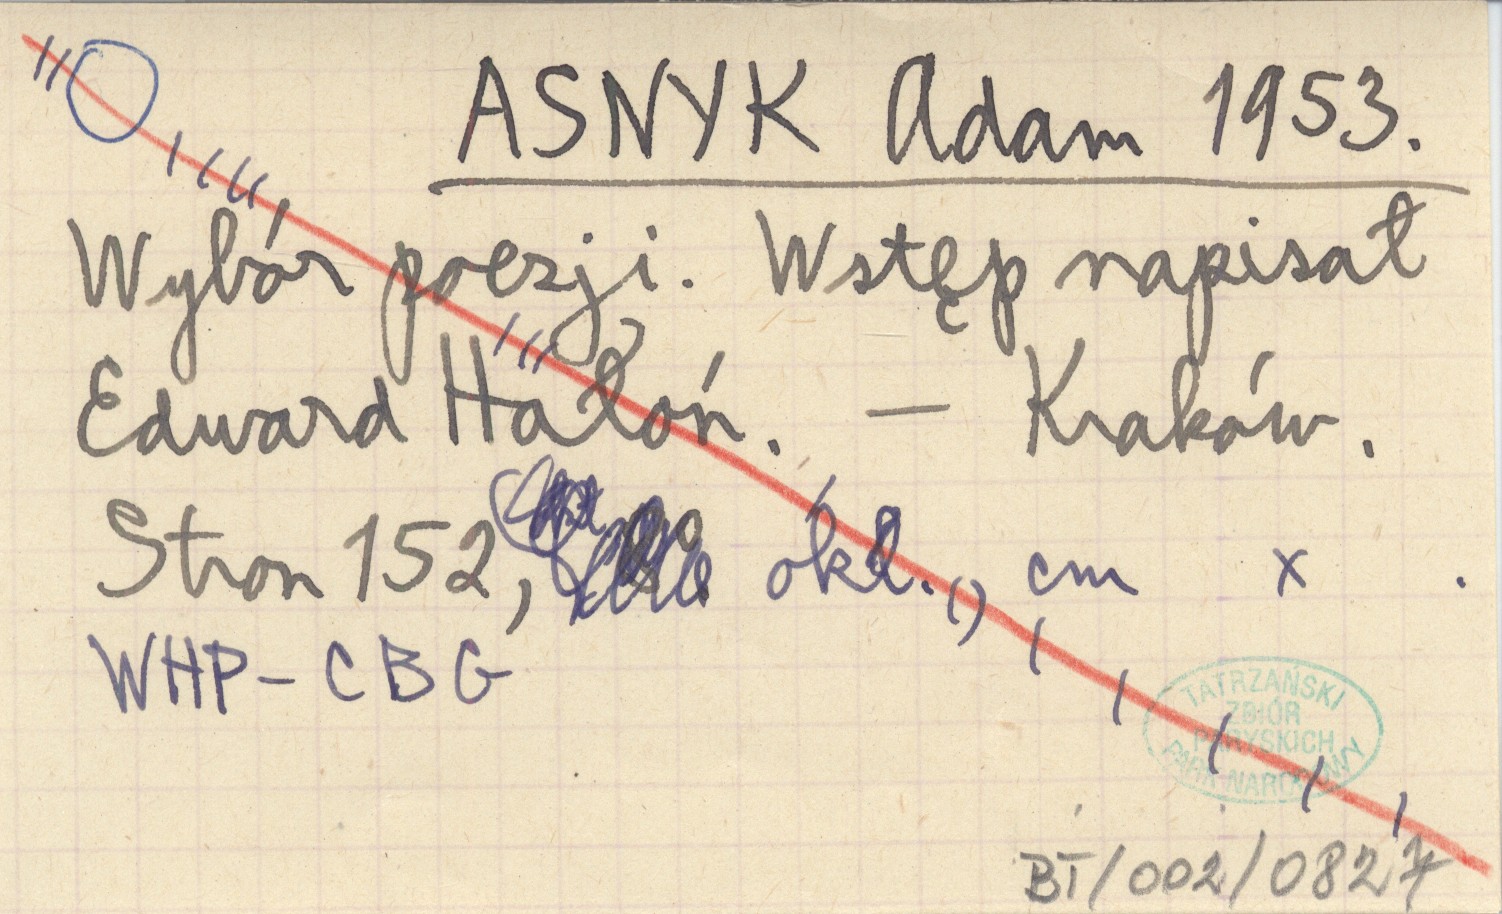 ASNYK Adam 1953.
Wybór poezji. Wstęp napisał
Edward Hałoń. — Kraków.
Stron 152, okł., cm x .
WHP-CBG
TATRZAŃSKI
ZBIÓR
PARYSKICH
PARK NARODOWY
BT/002/0827